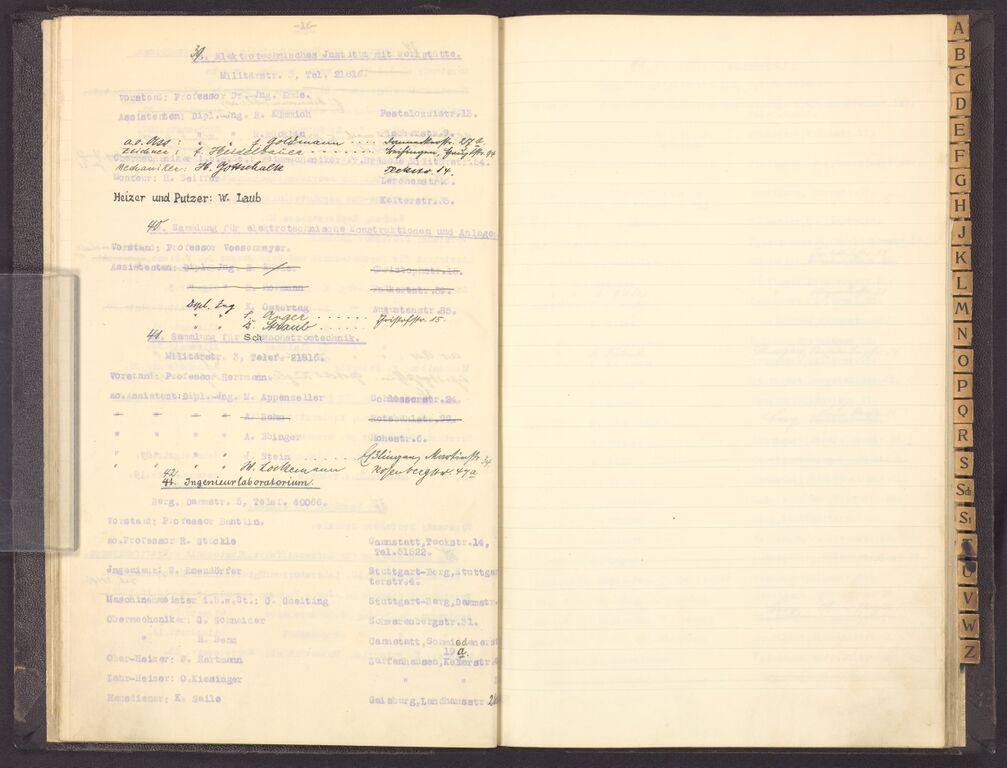 -16-
39. Elektrotechnisches Institut mit
Militärstr. 3, Tel. 21816.
Vorstand: Professor Dr.-Ing. Emde.
Assistenten: Dipl.-Ing. Pestalozzistr.18.
" " Fischerstr.9.
a.o. Ass: " " f. Goldmann .... 27a
Zeichner: f. Heidelbauer ....
Mechaniker: H. Gottschalk Teckstr. 14.
Monteur: H. Seiffer Lerchenstr.
Heizer und Putzer: W. Laub Kelterstr.35.
40. Sammlung für elektrotechnische Konstruktionen und Anlagen
Vorstand: Professor Veesenmeyer.
Assistenten: Dipl.-Ing. Christophstr.18.
Falkertstr.39.
Dipl. Ing K. Ostertag Augustenstr.85.
" " Anger ......
" " Straub ...... 15.
41. Sammlung für Schwachstromtechnik.
Militärstr. 3, Telef. 21816.
Vorstand: Professor Herrmann.
ao.Assistent:Dipl.-Ing. M. Appenzeller Schlossstr.24.
" " " " A. Rehm Rotebühlstr.99.
" " " " A. Ebinger Hohestr.6.
" " " " J. Stein Eßlingen, Martinstr. 34
" " " " W. Lockemann Rosenbergstr. 47a
42.
41. Ingenieurlaboratorium.
Berg, Dammstr. 5, Telef. 40066.
Vorstand: Professor Bantlin.
ao.Professor R. Stückle Cannstatt, Teckstr.14,
Tel.51522.
Ingenieur: W. Esendörfer Stuttgart-Berg, Stuttgar
terstr.4.
Maschinenmeister i.S.w.St.: G. Gneiting Stuttgart-Berg, Dammstr.
Obermechaniker: G. Schneider Schwarenbergstr.31.
" H. Benn Cannstatt, Schmiedenerstr
19a.
Ober-Heizer: F. Hartmann Zuffenhausen, Kelterstr.
Fahr-Heizer: O.Kiesinger " "
Hausdiener: K. Saile Gaisburg, Landhausstr.
A
B
C
D
E
F
G
H
J
K
L
M
N
O
P
Q
R
S
Sch
St
T
U
V
W
Z